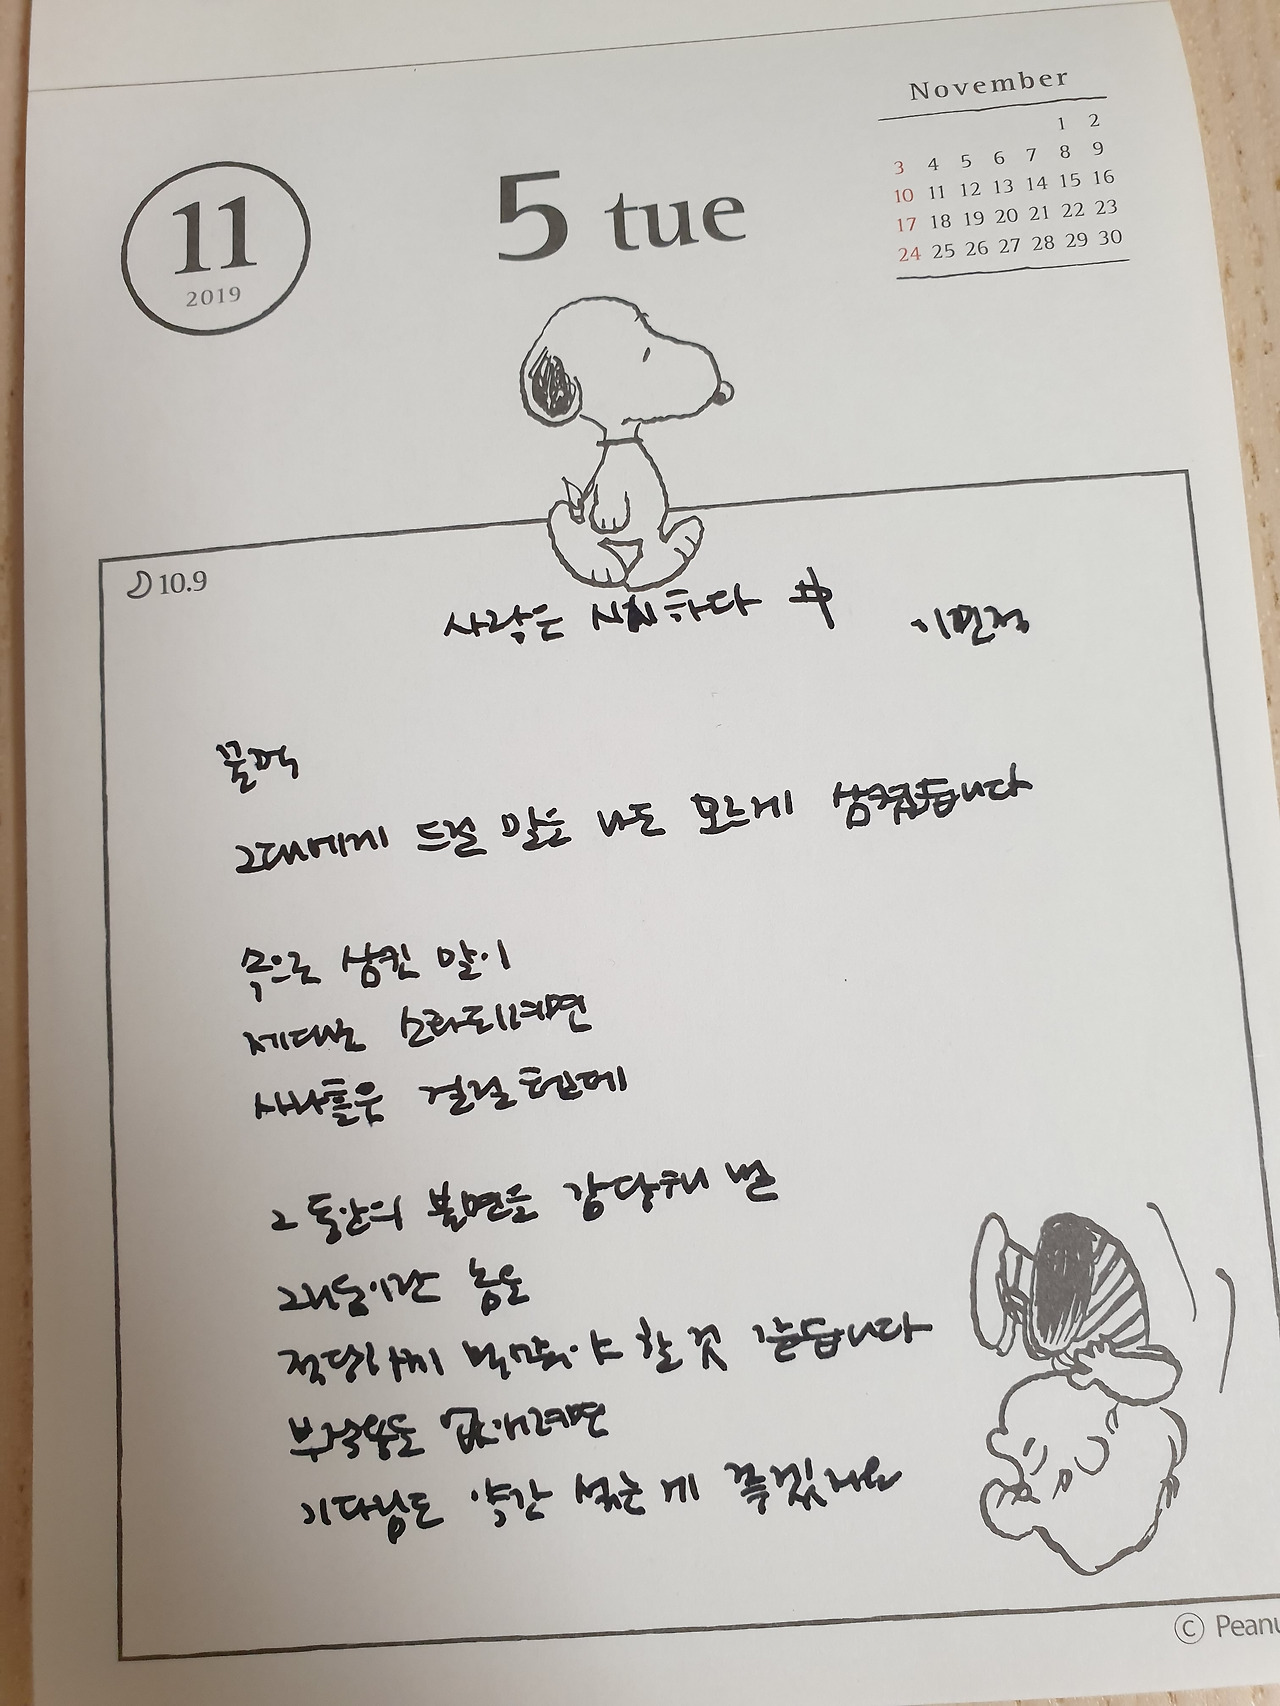 November
1 2
3 4 5 6 7 8 9
10 11 12 13 14 15 16
17 18 19 20 21 22 23
24 25 26 27 28 29 30
11
2019
5 tue
10.9
사랑은 하다 이민정
꿀꺽
그대에게 드릴 말을 나도 모르게 삼켰습니다
속으로 삼킨 말이
제대로 소화되려면
사나흘은 걸릴텐데
그 동안의 불면을 감당해 낼
그대들이란 놈을
적당하게  할 것 같습니다
부작용도 없애려면
기다림도 약간 섞는 게 좋겠네요
© Peanu